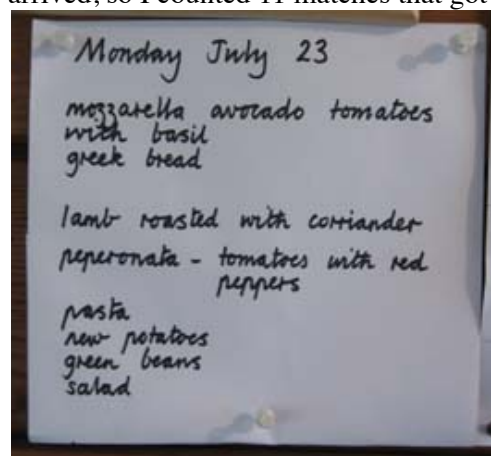 arrived, so I counted 11 matches that got
Monday July 23
mozzarella avocado tomatoes
with basil
greek bread
lamb roasted with corriander
peperonata - tomatoes with red
peppers
pasta
new potatoes
green beans
salad